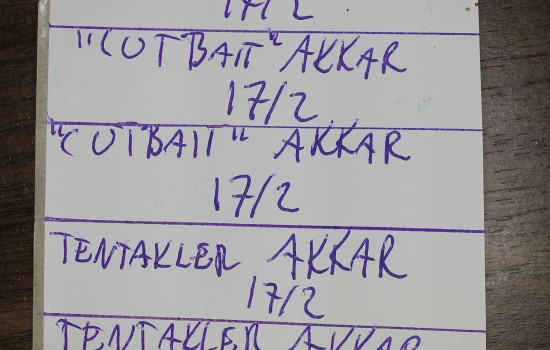 17/2
"CUTBAIT" AKKAR
17/2
"CUTBAIT" AKKAR
17/2
TENTAKLER AKKAR
17/2
TENTAKLER AKKAR